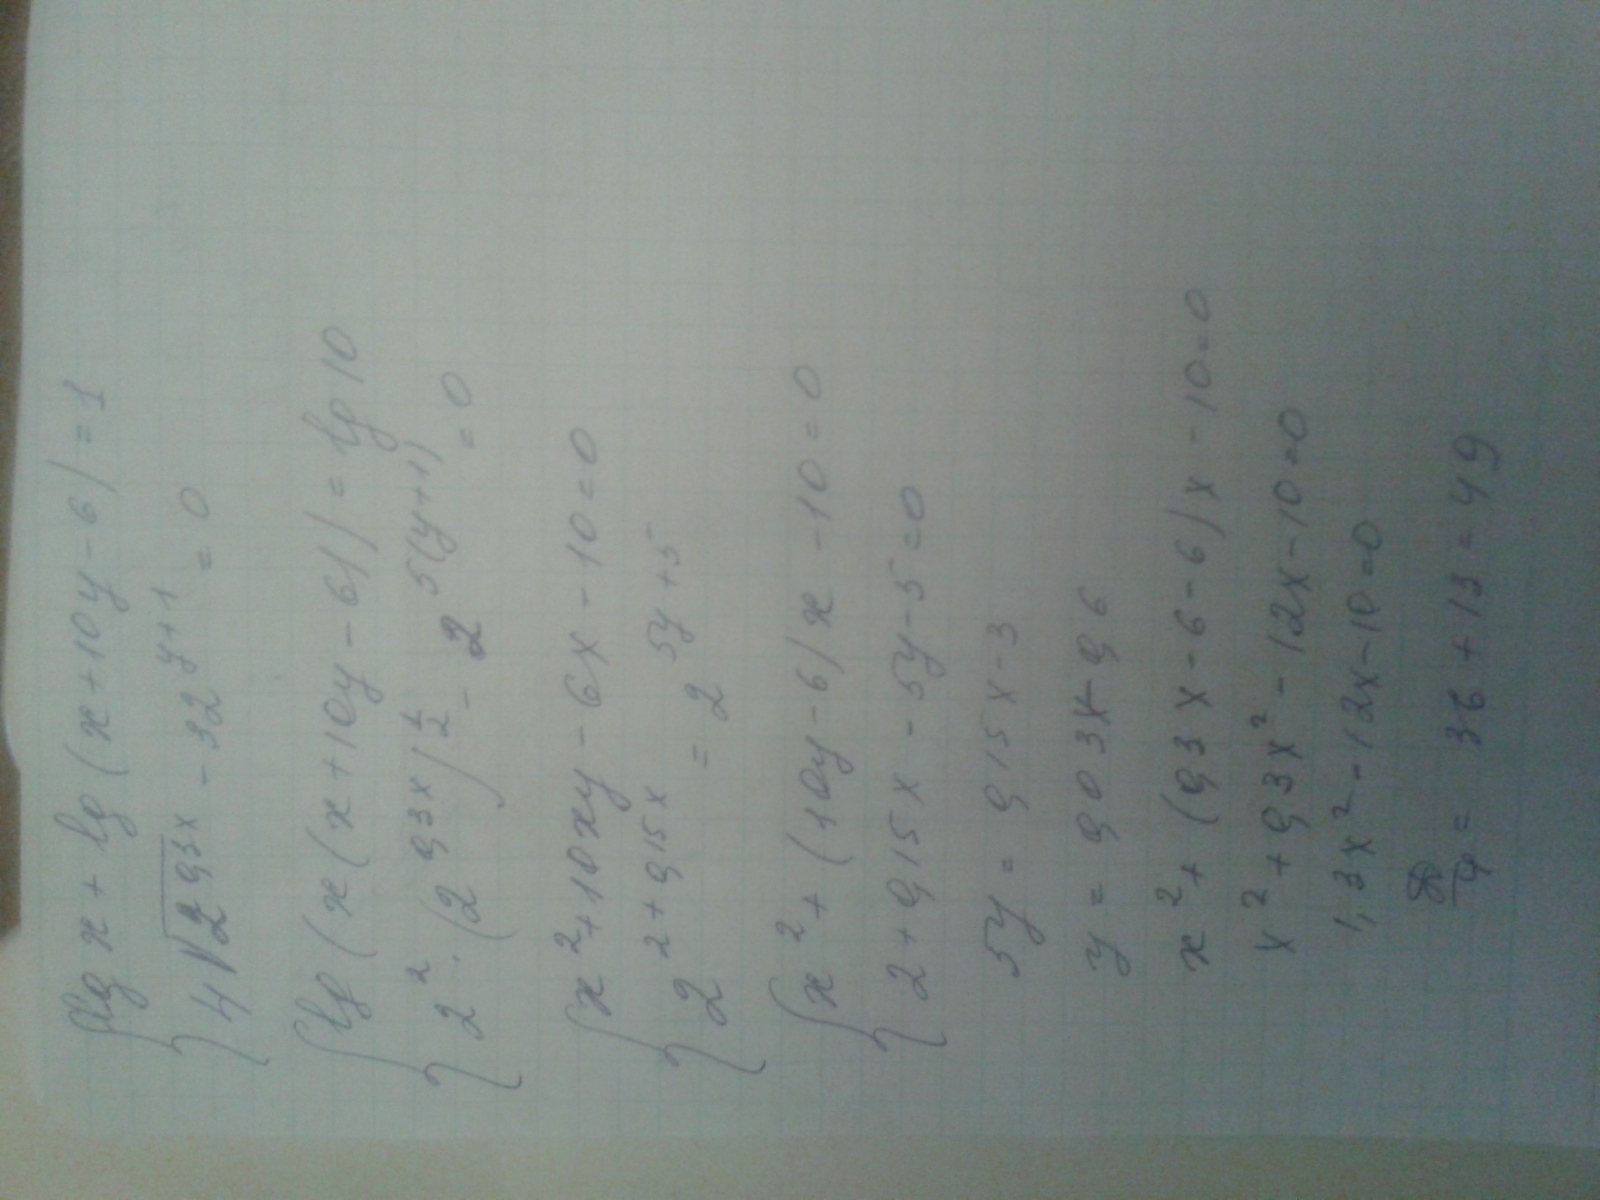 { lg x + lg (x + 10y - 6) = 1
4√2^0,3x - 32^y+1 = 0
{ lg (x (x + 10y - 6)) = lg 10
2² · (2^0,3x)^1/2 - 2^5(y+1) = 0
{ x² + 10xy - 6x - 10 = 0
2^2+0,15x = 2^5y+5
{ x² + (10y - 6) x - 10 = 0
2 + 0,15x - 5y - 5 = 0
5y = 0,15x - 3
y = 0,03x - 0,6
x² + (0,3x - 6 - 6) x - 10 = 0
x² + 0,3x² - 12x - 10 = 0
1,3x² - 12x - 10 = 0
D/4 = 36 + 13 = 49